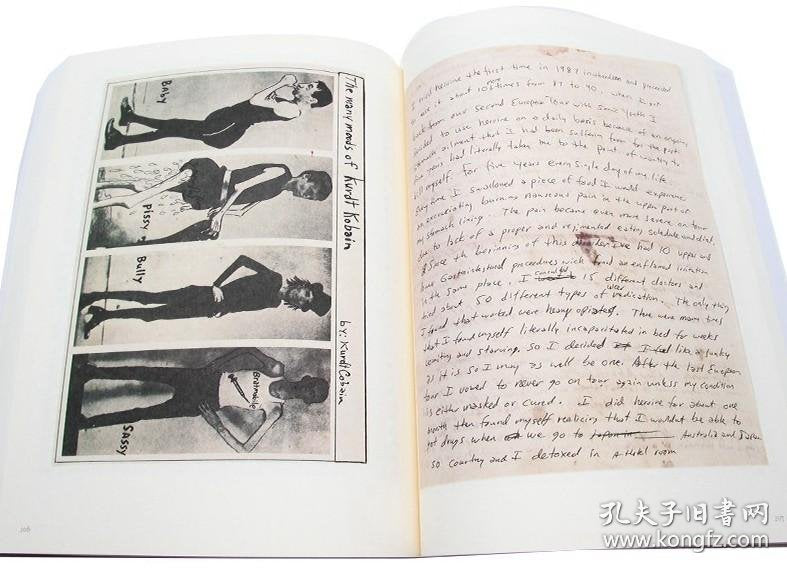 The many moods of Kurdt Kobain
by: Kurdt Cobain
BABY
PISSY
Bully
Bratmobile
SASSY
I tried heroine the first time in 1987 in Aberdeen and proceeded
to use it about 10 more times from 87 to 90. When I got
back from our second European Tour with Sonic Youth I
decided to use heroine on a daily basis because of an ongoing
stomach ailment that I had been suffering from for the past
five years had literally taken me to the point of wanting to
kill myself. For five years every single day of my life
Every time I swallowed a piece of food I would experience
an excruciating burning nauseous pain in the upper part of
my stomach lining. The pain became even more severe on tour
due to lack of a proper and regimented eating schedule and diet.
Since the beginning of this disorder Ive had 10 upper and
lower Gastrointestinal procedures wich found an enflamed irritation
in the same place. I consulted 15 different doctors and
tried about 50 different types of ulcer medication. The only thing
I found that worked were heavy opiates. There were many times
that I found myself literally incapacitated in bed for weeks
vomiting and starving. So I decided if I feel like a junky
as it is so I may as well be one. After the last European
tour I vowed to never go on tour again unless my condition
is either masked or cured. I did heroine for about one
month then found myself realizing that I wouldnt be able to
get drugs when we go to Japan in Australia and Japan
so Courtney and I detoxed in a Hotel room
206
孔夫子旧书网
www.kongfz.com